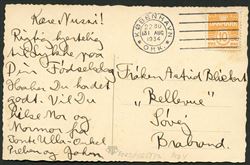 Kære Nussi!
Rigtig hjertelig
til Lykke paa
Din Fødselsdag
Haaber Du hadet
godt. Vil Du
hilse Mor og
Mormor fra
Tante Ulla - Onkel
og John
KØBENHAVN
OMK.
31 AUG
1934
10
Frøken Astrid
"Bellevue"
Brabrand.